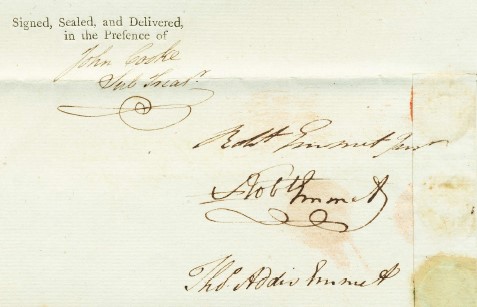 Signed, Sealed, and Delivered,
in the Presence of
John Cooke
Sub Treasr.
Robt Emmet Junr
Robt Emmet
Thos Addis Emmet